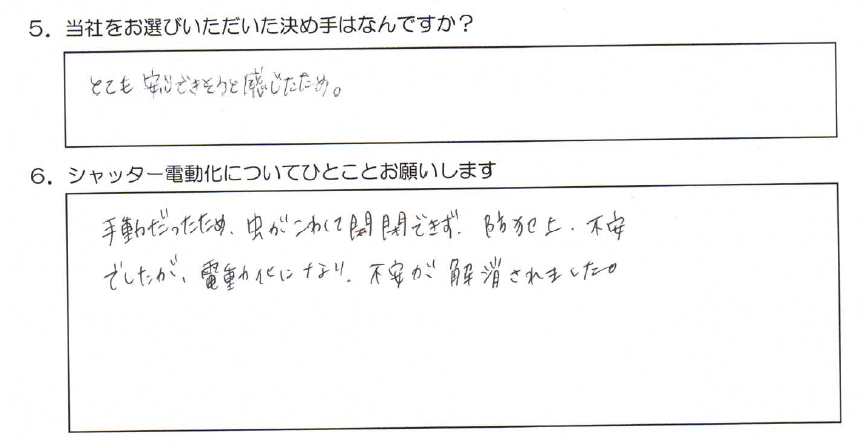 5. 当社をお選びいただいた決め手はなんですか？
とても安心できそうと感じたため。
6. シャッター電動化についてひとことお願いします
手動だったため、虫がこわくて開閉できず、防犯上、不安
でしたが、電動化になり、不安が解消されました。